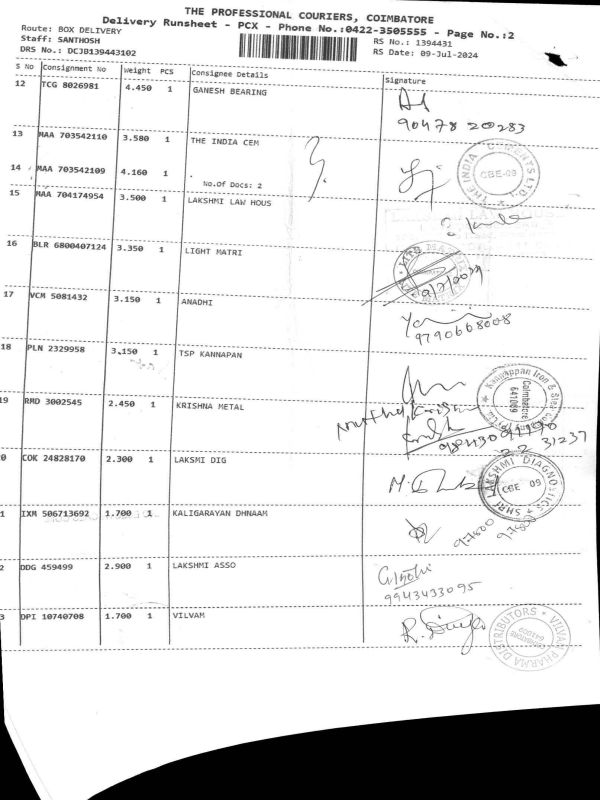 THE PROFESSIONAL COURIERS, COIMBATORE
Delivery Runsheet - PCX - Phone No.:0422-3505555 - Page No.:2
Route: BOX DELIVERY
Staff: SANTHOSH
DRS No.: DCJB139443102
RS No.: 1394431
RS Date: 09-Jul-2024
S No Consignment No Weight PCS Consignee Details Signature
12 TCG 8026981 4.450 1 GANESH BEARING
90478 20283
13 MAA 703542110 3.580 1 THE INDIA CEM
THE INDIA CEMENTS LTD. CBE-09
14 MAA 703542109 4.160 1
No.Of Docs: 2
15 MAA 704174954 3.500 1 LAKSHMI LAW HOUS
16 BLR 6800407124 3.350 1 LIGHT MATRI
17 VCM 5081432 3.150 1 ANADHI
9790668008
18 PLN 2329958 3,150 1 TSP KANNAPAN
Kannappan Iron & Steel Co
Coimbatore
641009
19 RMD 3002545 2.450 1 KRISHNA METAL
Muthu Krishna
31237
0 COK 24828170 2.300 1 LAKSMI DIG
SHRI LAKSHMI DIAGNOSTICS CBE 09
1 IXM 506713692 1.700 1 KALIGARAYAN DHNAAM
97800
2 DDG 459499 2.900 1 LAKSHMI ASSO
9943433095
3 DPI 10740708 1.700 1 VILVAM
VILVAM PHARMA DISTRIBUTORS
COIMBATORE
641009